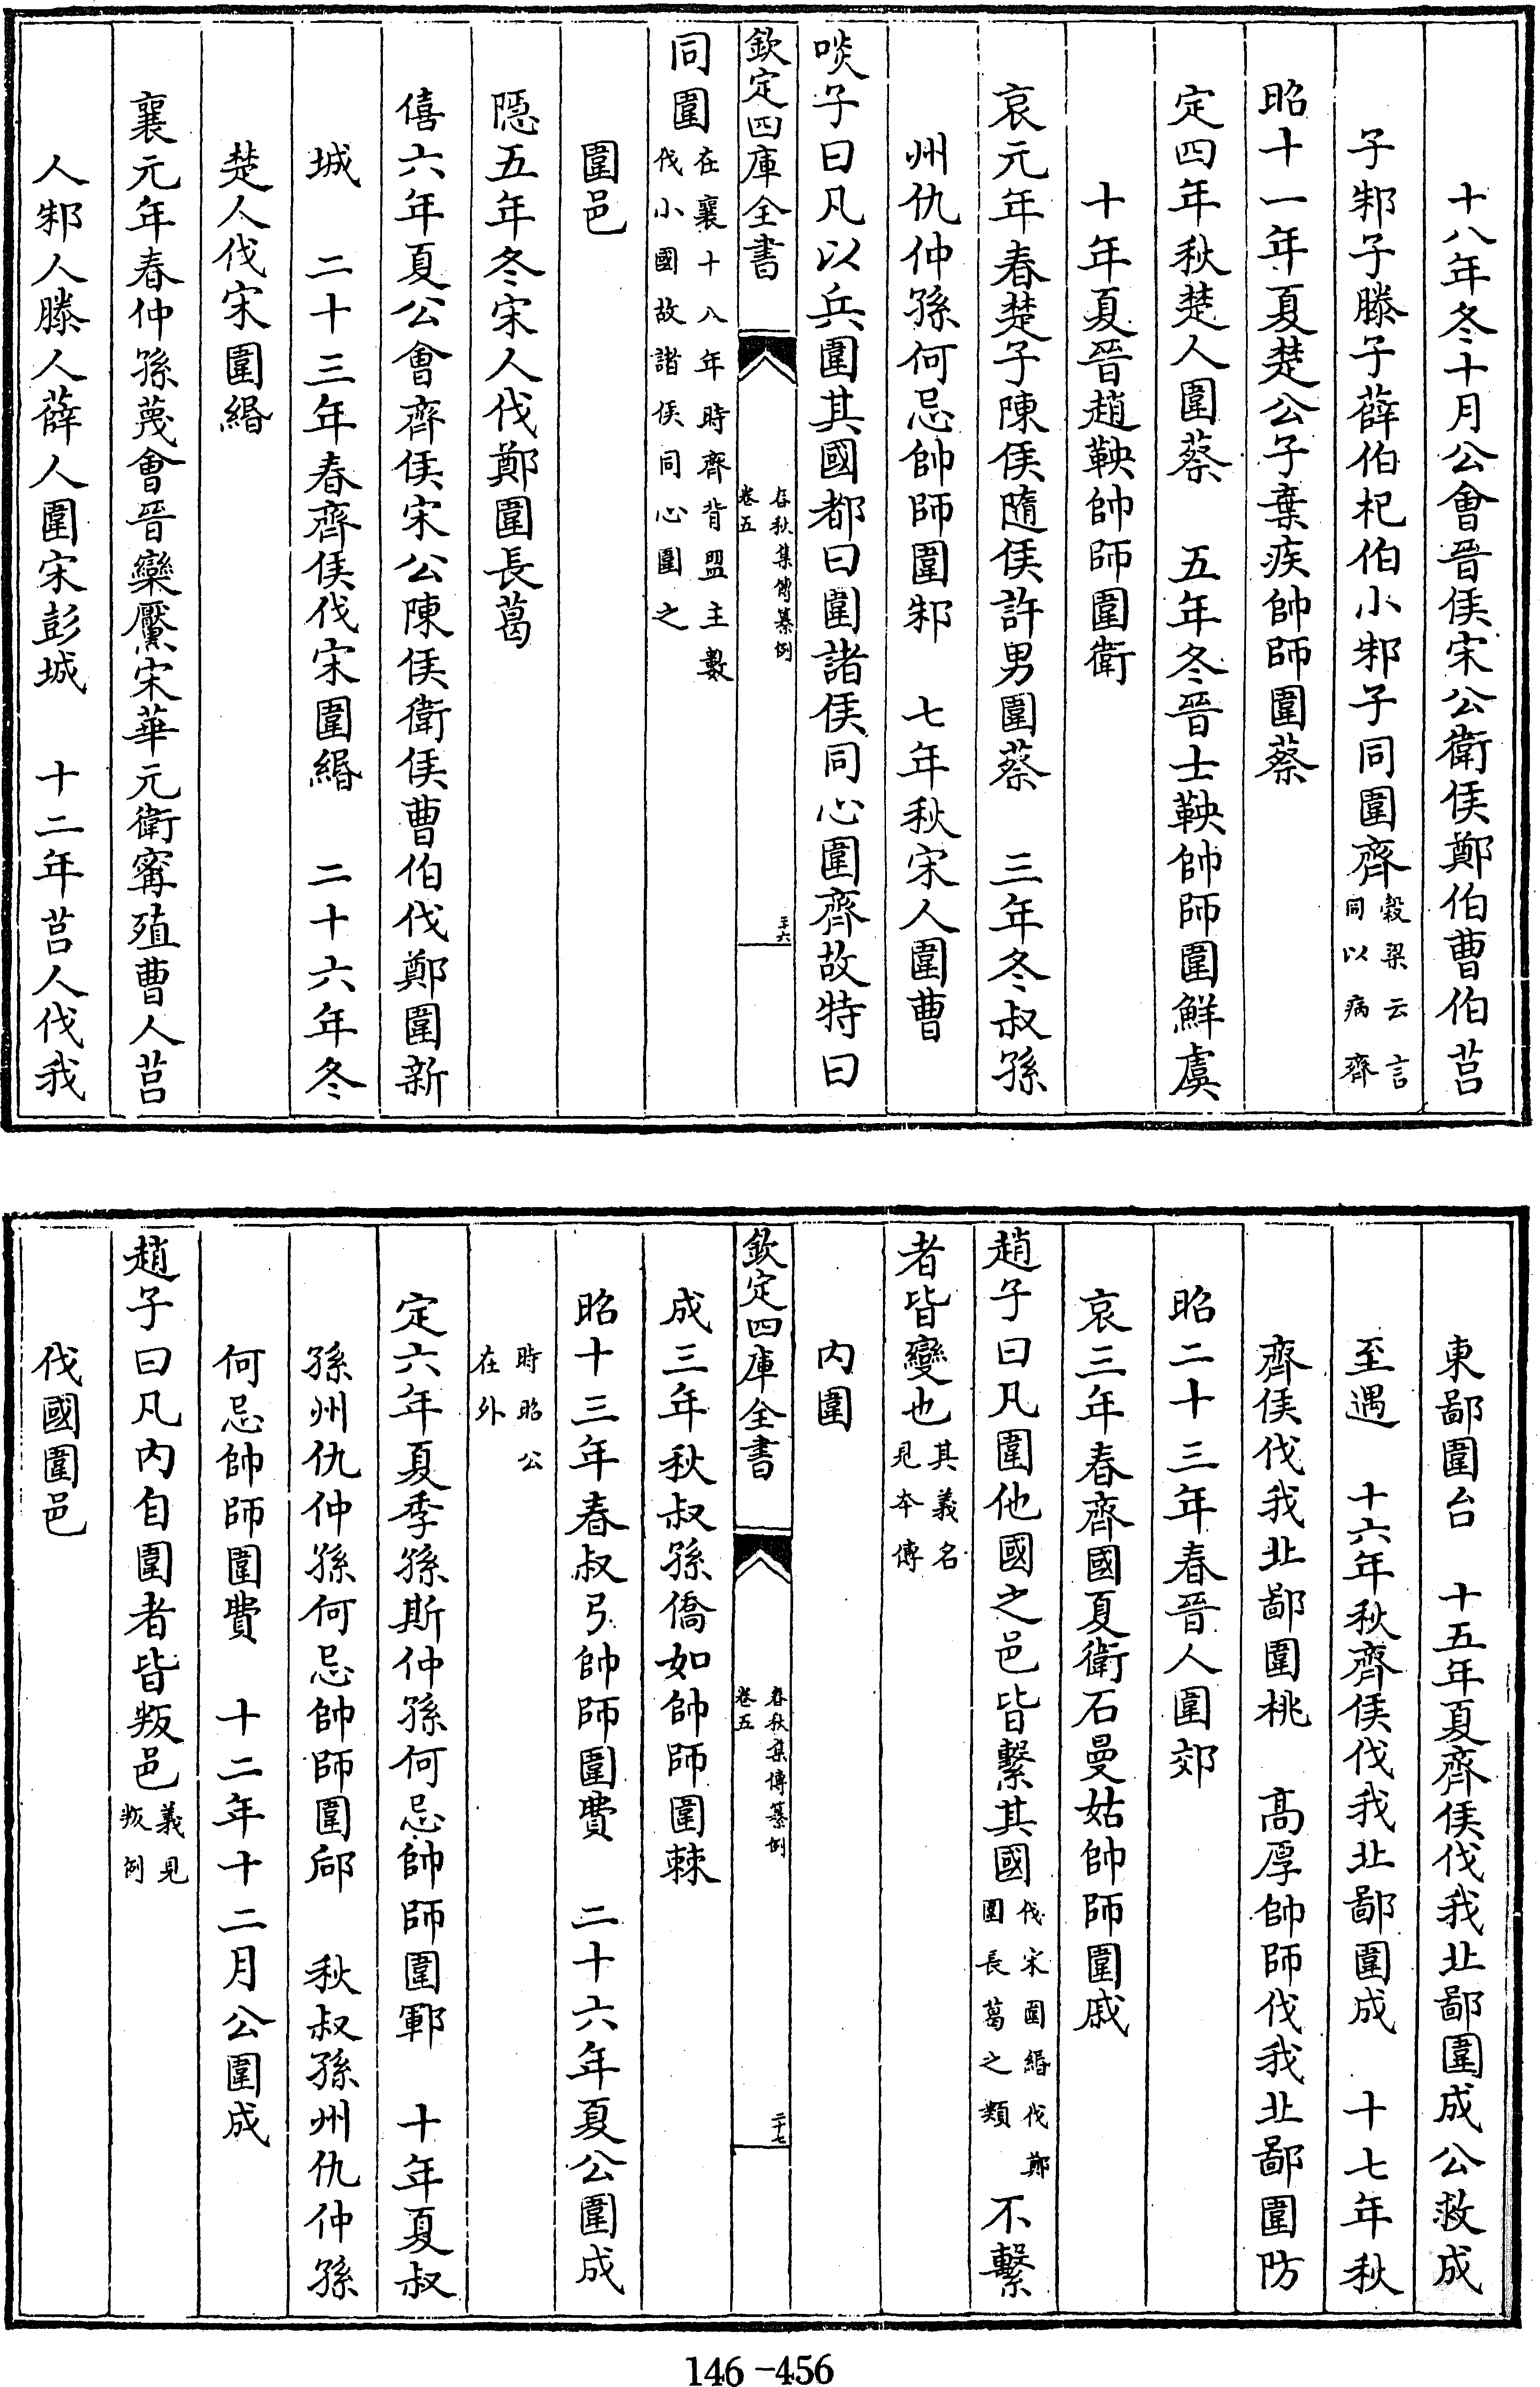 十八年冬十月公會晉侯宋公衛侯鄭伯曹伯莒
子邾子滕子薛伯杞伯小邾子同圍齊穀梁云言同以病齊
昭十一年夏楚公子棄疾帥師圍蔡
定四年秋楚人圍蔡　五年冬晉士鞅帥師圍鮮虞
十年夏晉趙鞅帥師圍衛
哀元年春楚子陳侯隨侯許男圍蔡　三年冬叔孫
州仇仲孫何忌帥師圍邾　七年秋宋人圍曹
啖子曰凡以兵圍其國都曰圍諸侯同心圍齊故特曰
欽定四庫全書　春秋集傳纂例卷五　二十六
同圍在襄十八年時齊背盟主數伐小國故諸侯同心圍之
圍邑
隱五年冬宋人伐鄭圍長葛
僖六年夏公會齊侯宋公陳侯衛侯曹伯伐鄭圍新
城　二十三年春齊侯伐宋圍緡　二十六年冬
楚人伐宋圍緡
襄元年春仲孫蔑會晉欒黶宋華元衛甯殖曹人莒
人邾人滕人薛人圍宋彭城　十二年莒人伐我
東鄙圍台　十五年夏齊侯伐我北鄙圍成公救成
至遇　十六年秋齊侯伐我北鄙圍成　十七年秋
齊侯伐我北鄙圍桃　高厚帥師伐我北鄙圍防
昭二十三年春晉人圍郊
哀三年春齊國夏衛石曼姑帥師圍戚
趙子曰凡圍他國之邑皆繫其國伐宋圍緡伐鄭圍長葛之類不繫
者皆變也其義名見本傳
內圍
欽定四庫全書　春秋集傳纂例卷五　二十七
成三年秋叔孫僑如帥師圍棘
昭十三年春叔弓帥師圍費　二十六年夏公圍成
時昭公在外
定六年夏季孫斯仲孫何忌帥師圍鄆　十年夏叔
孫州仇仲孫何忌帥師圍郈　秋叔孫州仇仲孫
何忌帥師圍費　十二年十二月公圍成
趙子曰凡內自圍者皆叛邑義見叛例
伐國圍邑
146-456